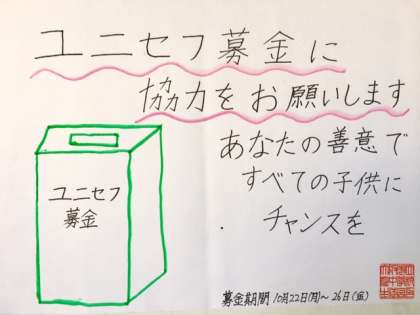 ユニセフ募金に
協力をお願いします
あなたの善意で
すべての子供に
チャンスを
ユニセフ
募金
募金期間 10月22日(月)~26日(金)